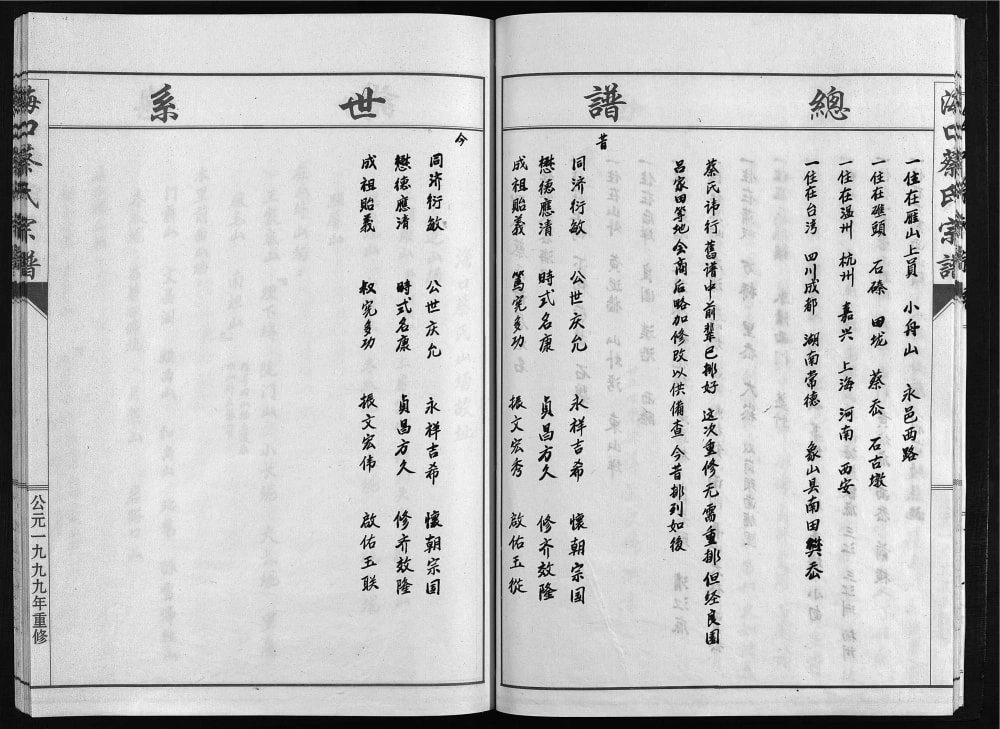 總譜
海口蔡氏宗譜
一住在雁山上員 小舟山 永邑西路
一住在礁頭 石磉 田垅 蔡岙 石古墩
一住在温州 杭州 嘉兴 上海 河南 西安
一住在台湾 四川成都 湖南常德 象山具南田樊岙
蔡氏讳行舊谱中前辈已排好 这次重修无需重排但经良园
吕家田等地会商后略加修改以供備查今昔排列如後
昔
同济衍敏 公世庆允 永祥吉希 懷朝宗国
懋德應清 時式名康 貞昌方久 修齐效隆
成祖貽義 篤宪多功 振文宏秀 啟佑玉從
世系
今
同济衍敏 公世庆允 永祥吉希 懷朝宗国
懋德應清 時式名康 貞昌方久 修齐效隆
成祖貽義 叙宪多功 振文宏伟 啟佑玉联
海口蔡氏宗譜
公元一九九九年重修